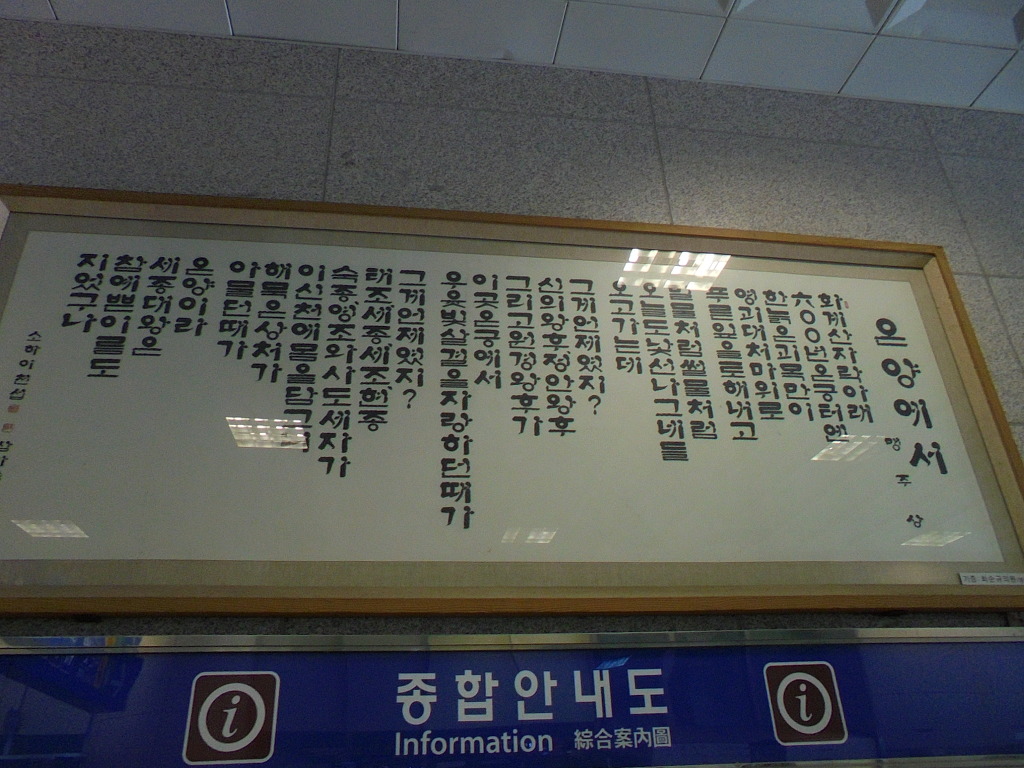 온양에서
맹주상
화계산자락아래
六00년은등터엔
한돌은괴목만이
영괴대처마위로
푸른잎으로해내고
밀물처럼썰물처럼
오늘도낯선나그네들
오고가는데
그게언제였지?
신의왕후정안왕후
그리고원경왕후가
이곳온등에서
우윳빛살결을자랑하던때가
그게언제였지?
태조세종세조현종
숙종영조와사도세자가
이신천에몸을담그고
해묵은상처가
아물던때가
온양이라
세종대왕은
참예쁜이름도
지었구나
소하이천섭
기증 최순규의원
종합안내도
Information 綜合案內圖